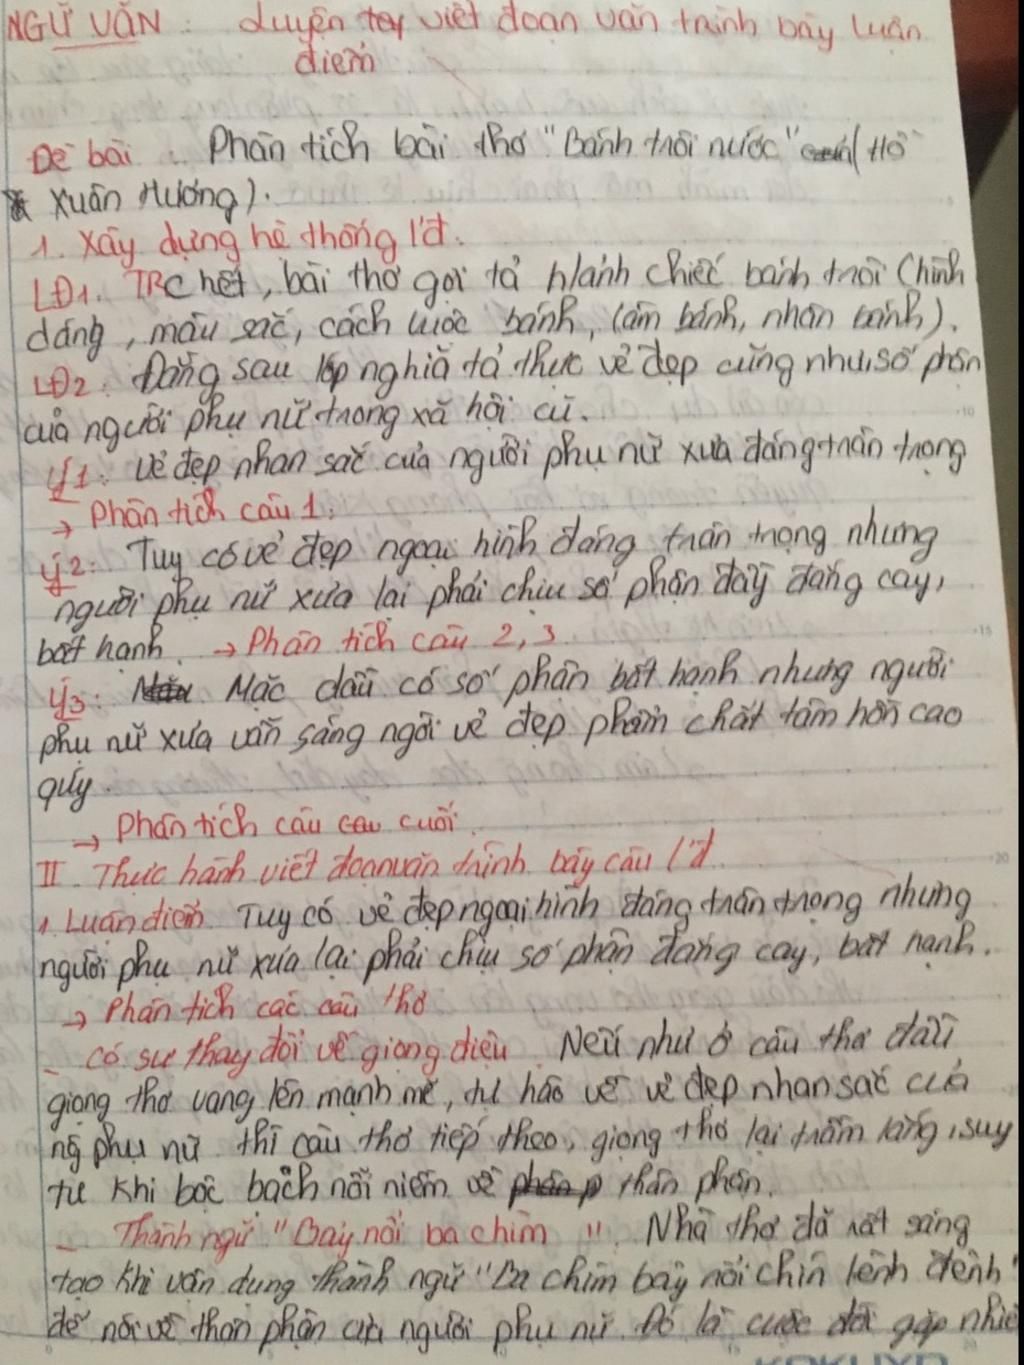 NGỮ VĂN: Luyện tập viết đoạn văn trình bày luận
điểm
Đề bài: Phân tích bài thơ "Bánh trôi nước" (Hồ
Xuân Hương).
1. Xây dựng hệ thống l'đ.
LĐ1. TRC hết, bài thơ gợi tả h/ảnh chiếc bánh trôi (hình
dáng, màu sắc, cách luộc bánh, làm bánh, nhân bánh).
LĐ2: Đằng sau lớp nghĩa tả thực vẻ đẹp cũng như số phận
của người phụ nữ trong xã hội cũ.
Ý1: Vẻ đẹp nhan sắc của người phụ nữ xưa đáng trân trọng
→ Phân tích câu 1.
Ý2: Tuy có vẻ đẹp ngoại hình đáng trân trọng nhưng
người phụ nữ xưa lại phải chịu số phận đầy đắng cay,
bất hạnh. → Phân tích câu 2, 3.
Ý3: Mặc dầu có số phận bất hạnh nhưng người
phụ nữ xưa vẫn sáng ngời vẻ đẹp phẩm chất tâm hồn cao
quý.
→ Phân tích câu cuối.
II. Thực hành viết đoạn văn trình bày câu l'đ
1. Luận điểm Tuy có vẻ đẹp ngoại hình đáng trân trọng nhưng
người phụ nữ xưa lại phải chịu số phận đắng cay, bất hạnh.
→ Phân tích các câu thơ
- Có sự thay đổi về giọng điệu. Nếu như ở câu thơ đầu,
giọng thơ vang lên mạnh mẽ, tự hào về vẻ đẹp nhan sắc của
ng phụ nữ thì câu thơ tiếp theo, giọng thơ lại trầm lắng, suy
tư khi bộc bạch nỗi niềm về thân phận.
- Thành ngữ "Bảy nổi ba chìm". Nhà thơ đã rất sáng
tạo khi vận dụng thành ngữ "Ba chìm bảy nổi chín lênh đênh"
để nói về thân phận của người phụ nữ. Đó là cuộc đời gặp nhiều